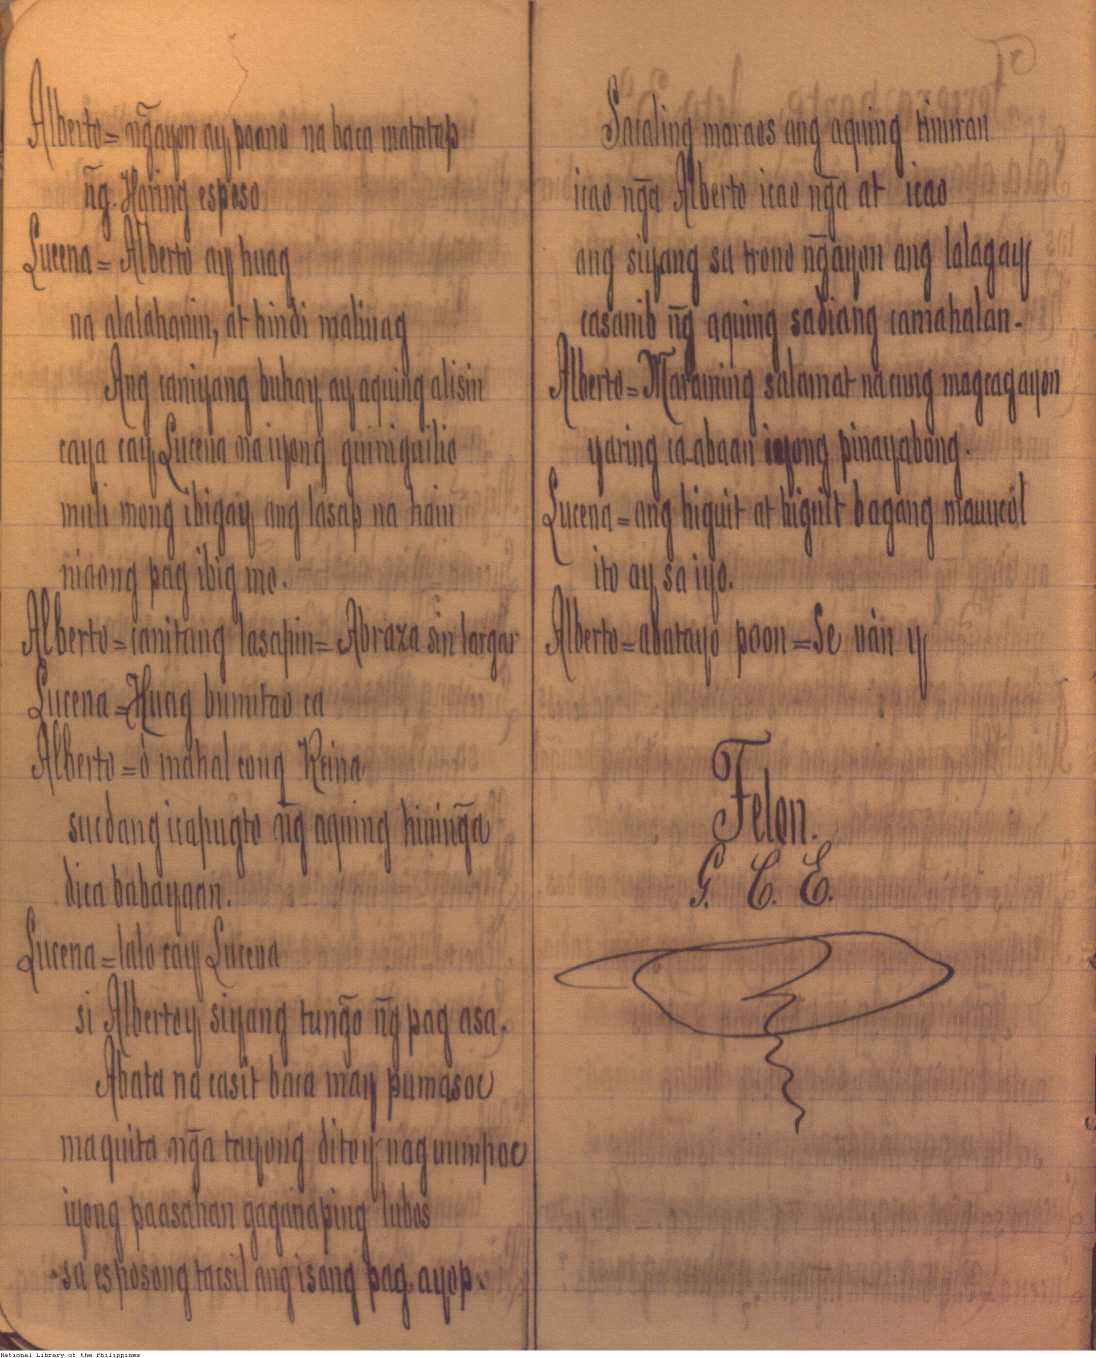 Alberto = n̄gayon ay paano na baca matatap
n̄g. Haring esposo
Lucena = Alberto ay huag
na alalahanin, at hindi malinag
Ang caniyang buhay ay aquing alisin
caya cay Lucena na iyong guiniguilio
muli mong ibigay ang lasap na hain
niaong pag ibig mo.
Alberto = canitang lasapin = Abraza sin largar
Lucena = Huag bumitao ca
Alberto = ò mahal cong Reina
sucdang icapugto n̄g aquing hinin̄ga
dica babayaan.
Lucena = lalo cay Lucena
si Albertoy siyang tun̄go n̄g pag asa.
Abata na casit baca may pumasoc
maquita n̄ga tayong ditoy nag uumpoc
iyong paasahan gaganaping lubos
sa esposong tacsil ang isang pag. ayop.
Sacaling maraos ang aquing tinuran
icao n̄ga Alberto icao n̄ga at icao
ang siyang sa trono n̄gayon ang lalagay
casanib n̄g aquing sadiang camahalan.
Alberto = Maraming salamat na cung magcagayon
yaring ca-abaan iyong pinayabong.
Lucena = ang higuit at higuit bagang mauucol
ito ay sa iyo.
Alberto = abatayo poon = Se ván y
Telon.
G. C. E.
National Library of the Philippines